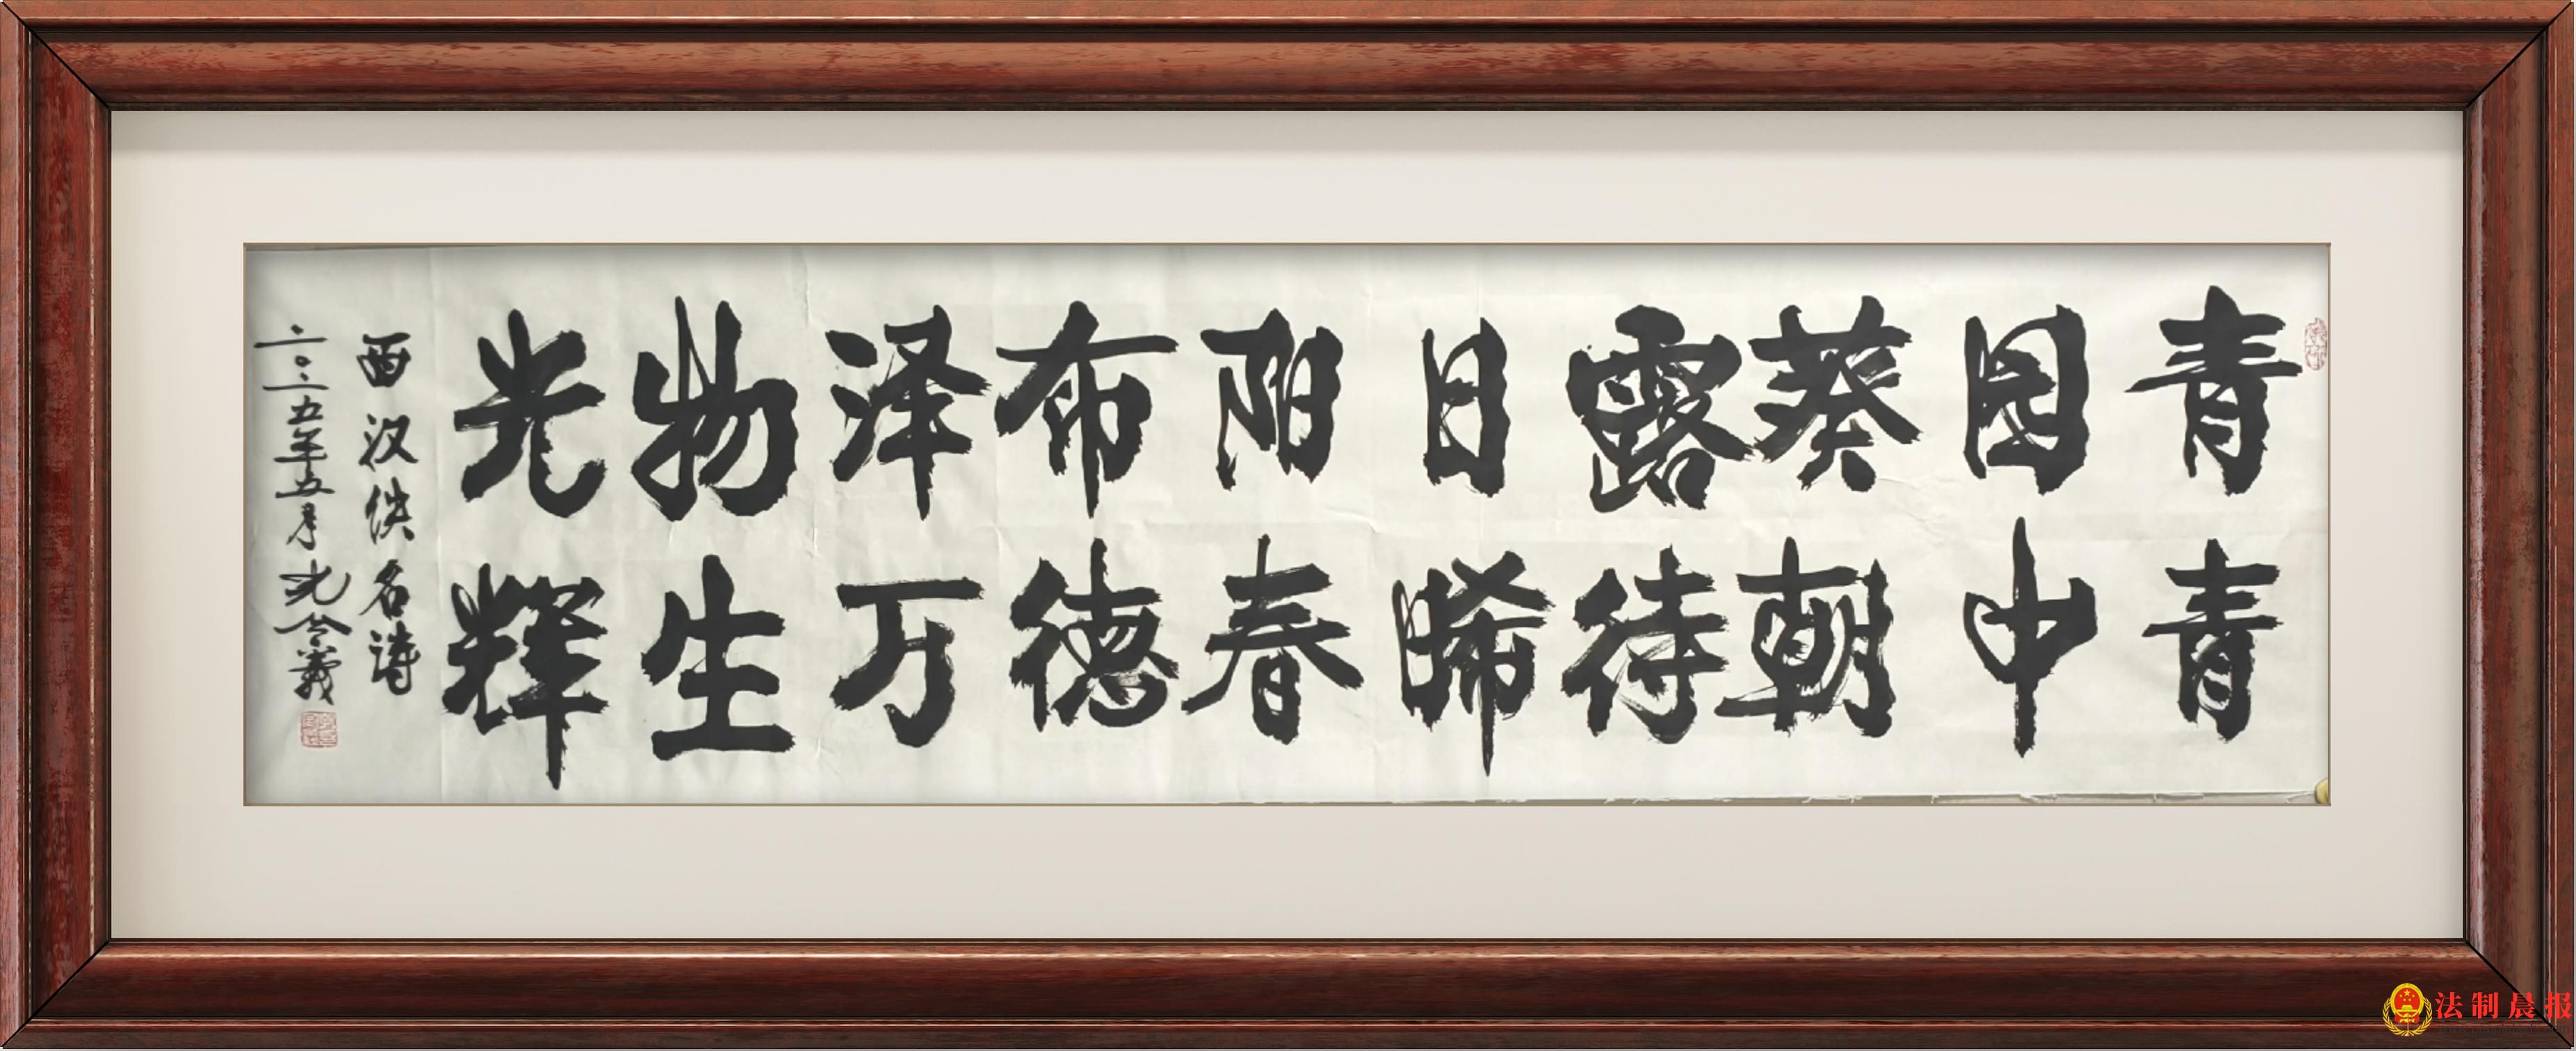 青青
园中
葵朝
露待
日晞
阳春
布德
泽万
物生
光辉
西汉佚名诗
二〇二五年五月
法制晨报